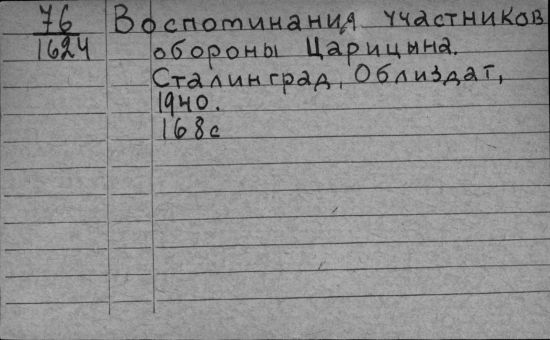 76 Воспоминания участников
1624 обороны Царицына.
Сталинград, Облиздат,
1940.
168с